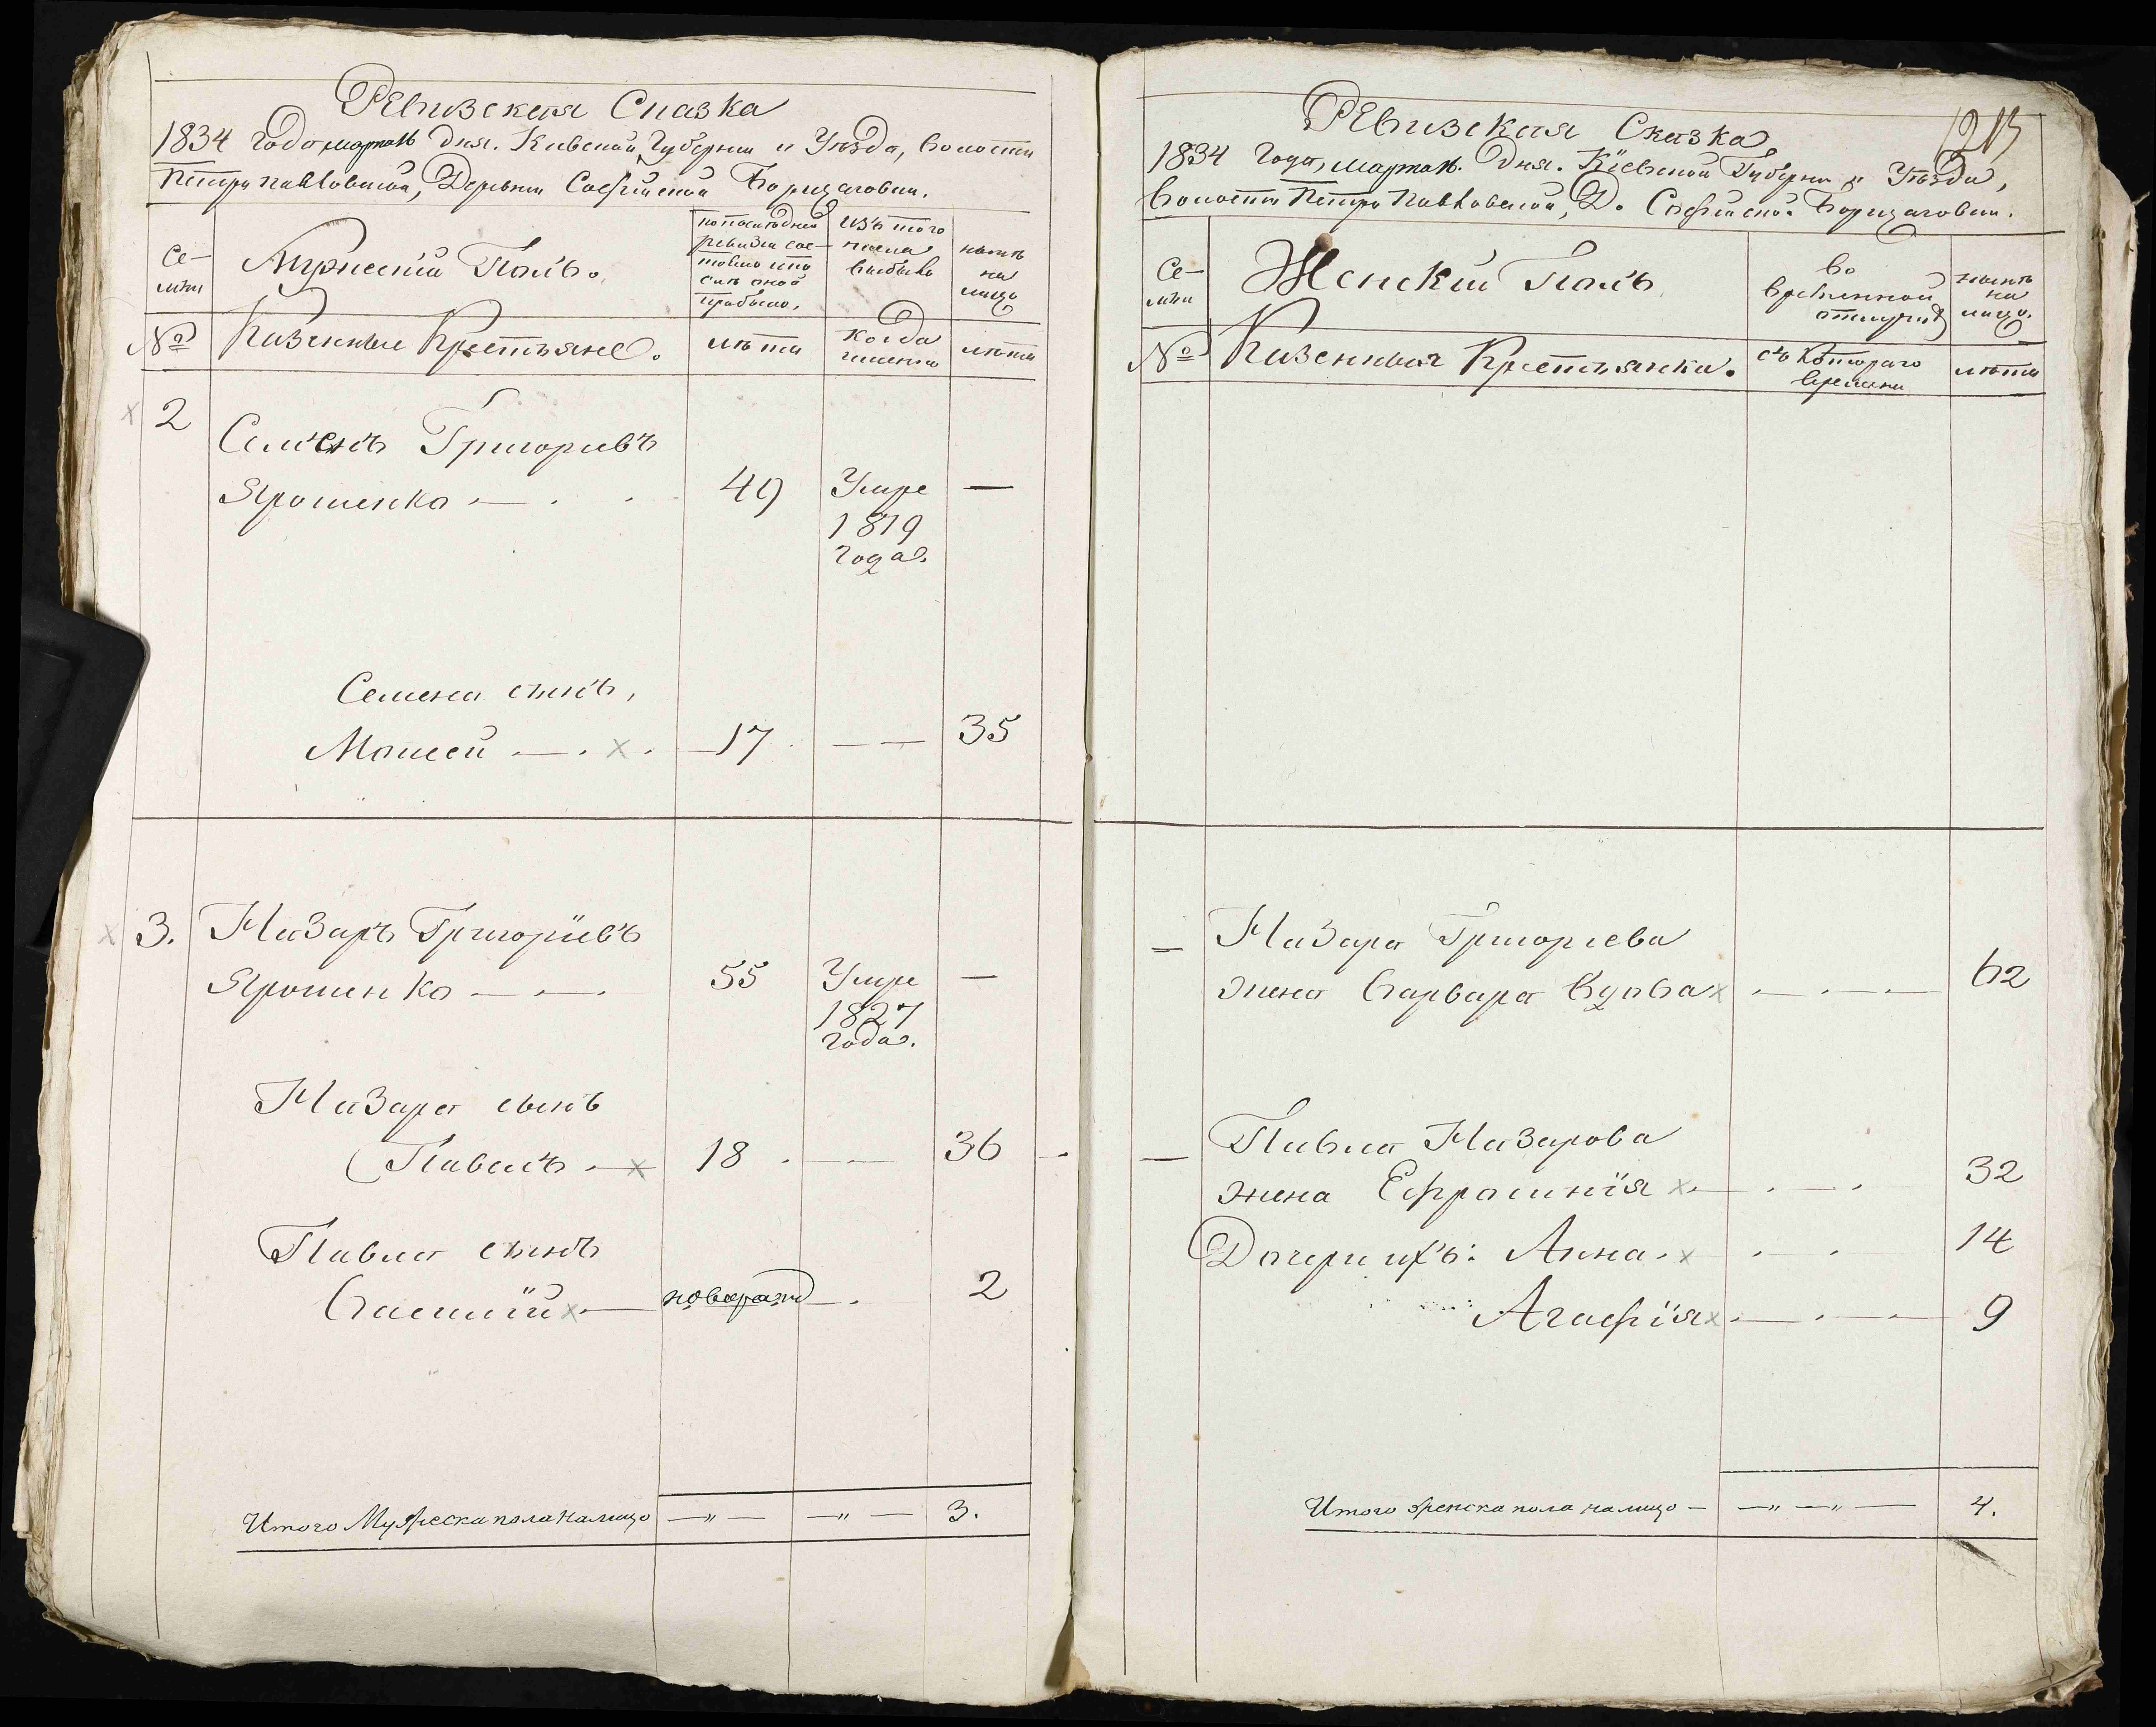 Ревизская Сказка
1834 Года марта дня. Киевской Губернии и Уезда, Волости
Петро Павловской, Деревни Софійской Борщаговки.
Се-
мьи
Мужеский Полъ.
по последней
ревизіи сос-
тояло и по
сле оной
прибыло.
Изъ того
числа
выбыло
ныне
на
лицо
№
Казенные Крестьяне.
лета
Когда
именно
лета
2
Семенъ Григориевъ
Ярошенко
49
Умре
—
1819
года.
Семена сынъ,
Моисей
17
35
3.
Назаръ Григоріевъ
Ярошенко
55
Умре
—
1827
года.
Назара сынъ
Павелъ
18
36
Павла сынъ
Василій
новорожд
2
Итого Мужеска пола налицо
3.
Ревизская Сказка
1834 Года, марта. Дня. Кіевской Губерни и Уезда,
Волости Петро Павловской, Д. Софійской Борщаговки.
Се-
мьи
Женский Полъ
Во
временной
отлучке
ныне
на
лицо.
№
Казенныя Крестьянки.
съ котораго
времени
лета
Назара Григориева
жена Варвара Вдова
62
Павла Назарова
жена Ефросинія
32
Дочери ихъ: Анна
14
Агафія
9
Итого женска пола налицо
4.